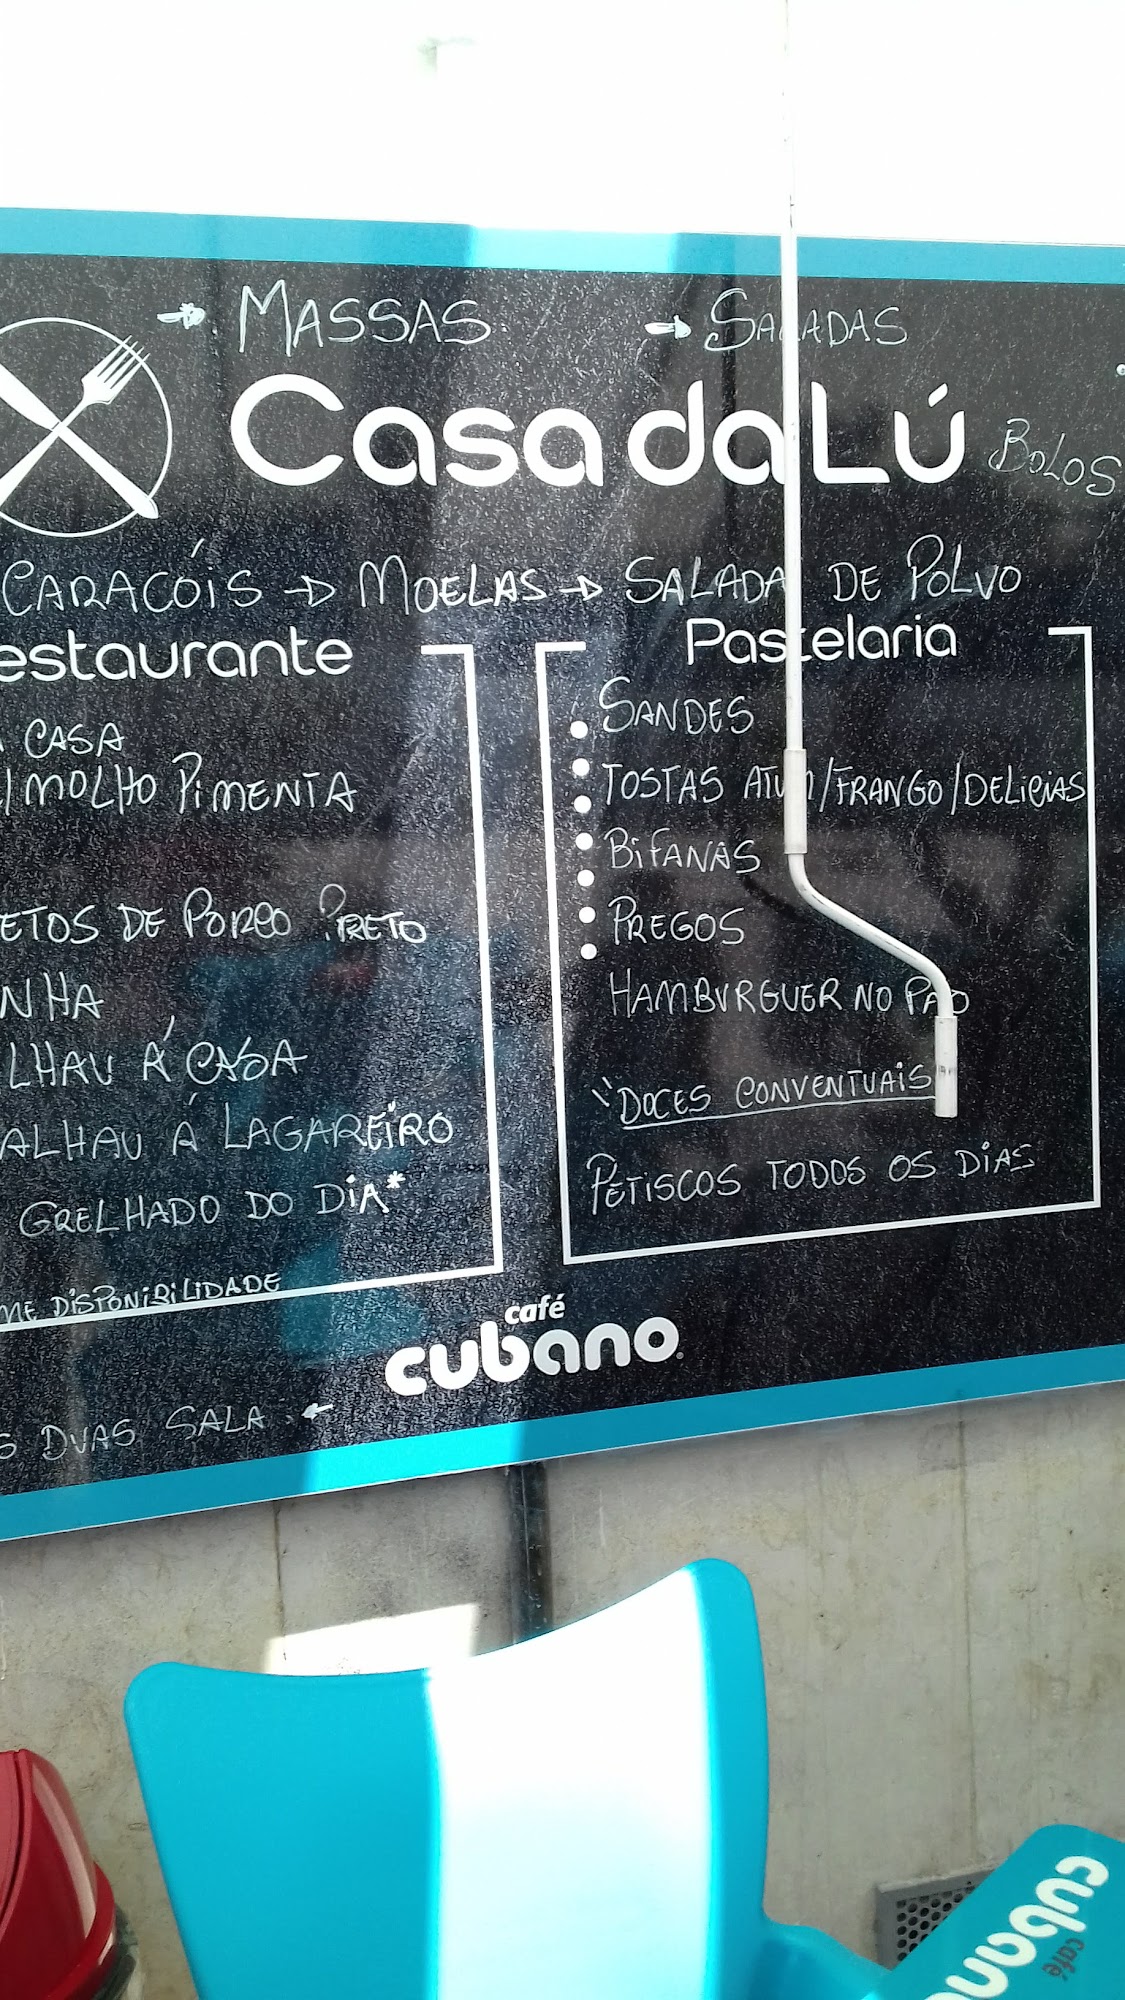 → MASSAS → SALADAS
Casa da Lú BOLOS
CARACÓIS → MOELAS → SALADA DE POLVO
estaurante
CASA
C/ MOLHO PIMENTA
ETOS DE PORCO PRETO
NHA
LHAU Á CASA
ALHAU Á LAGAREIRO
GRELHADO DO DIA*
ME DISPONIBILIDADE
S DUAS SALA
Pastelaria
SANDES
TOSTAS ATUM/FRANGO/DELICIAS
BIFANAS
PREGOS
HAMBURGUER NO PÃO
"DOCES CONVENTUAIS"
PETISCOS TODOS OS DIAS
café
cubano
cubano
café